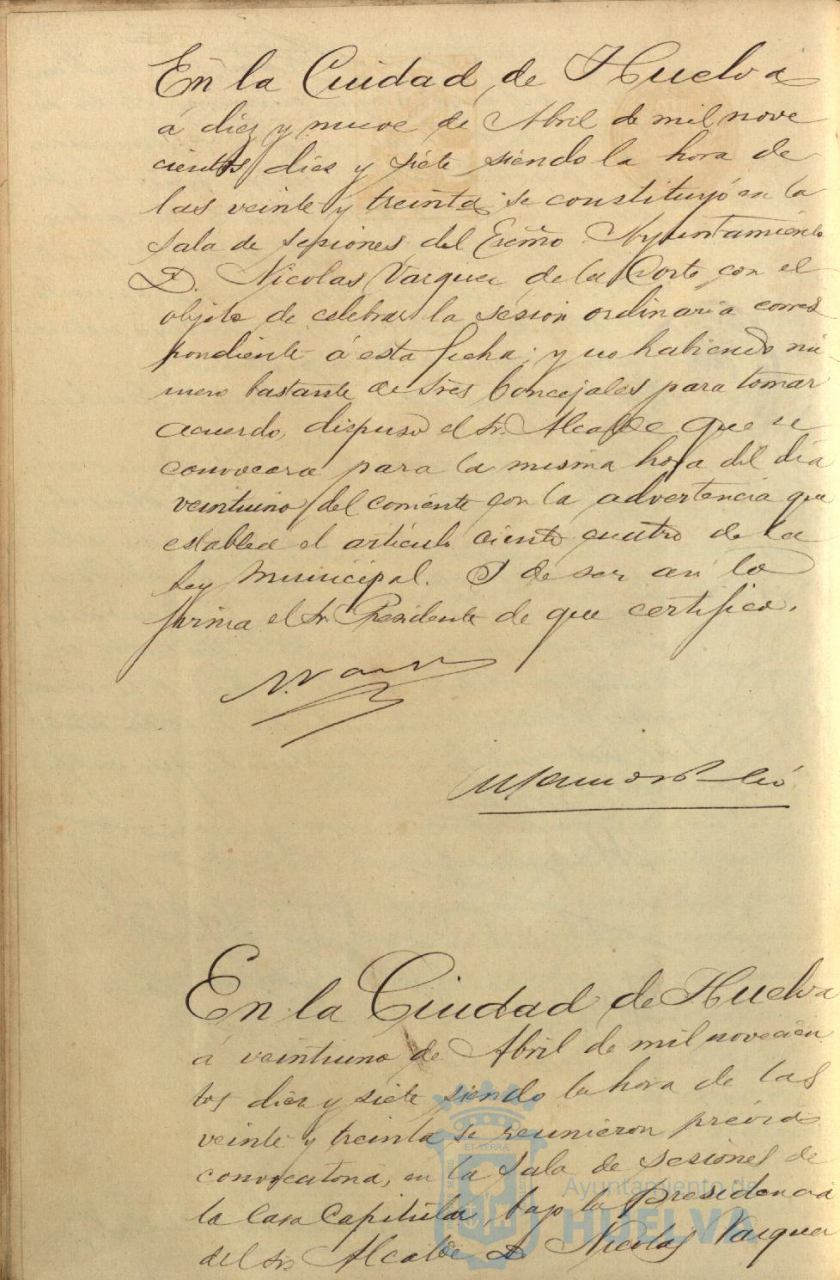 En la Cuidad de Huelva
á diez y nueve de Abril de mil nove
cientos diez y siete siendo la hora de
las veinte y treinta se constituyó en la
Sala de sesiones del Excmo Ayuntamiento
D. Nicolas Vazquez de la Corte con el
objeto de celebrar la sesion ordinaria corres
pondiente á esta fecha; y no habiendo nú
mero bastante de Sres Concejales para tomar
acuerdo, dispuso el Sr. Alcalde que se
convocara para la misma hora del día
veintiuno del corriente con la advertencia que
establece el artículo ciento cuatro de la
Ley Municipal. Y de ser así lo
firma el Sr. Presidente de que certifico.
En la Ciudad de Huelva
á veintiuno de Abril de mil novecien
tos diez y siete siendo la hora de las
veinte y treinta se reunieron prévia
convocatoria, en la Sala de Sesiones de
la Casa Capitular, bajo la Presidencia
del Sr Alcalde D. Nicolas Vazquez
Ayuntamiento de
HUELVA